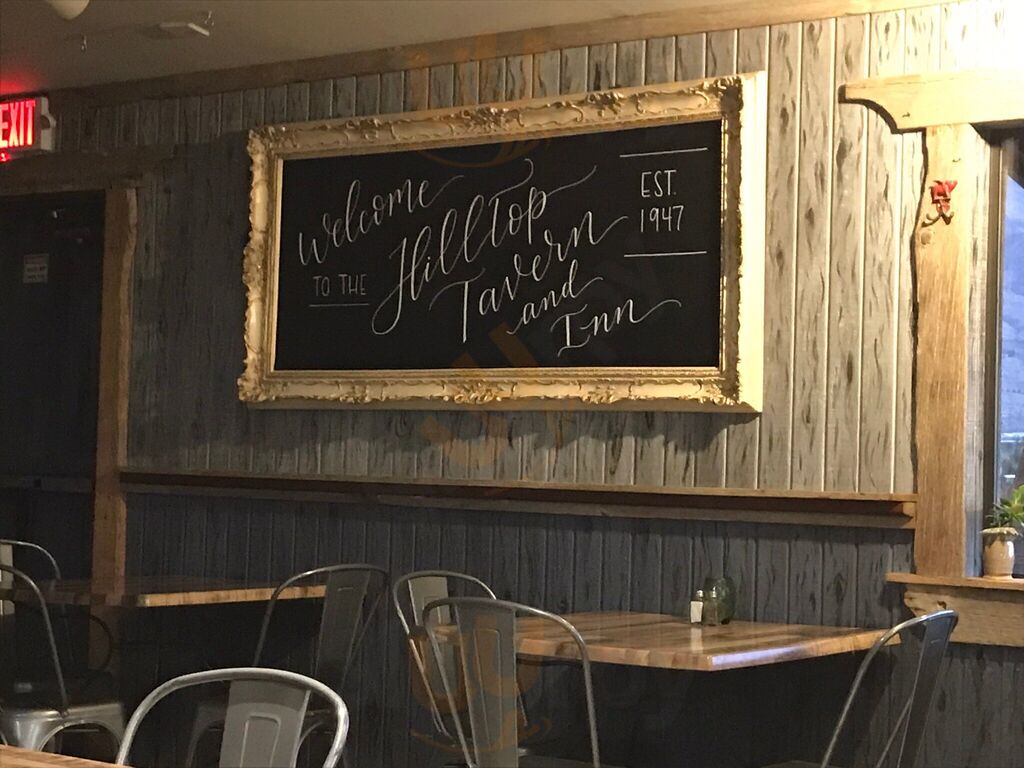 EXIT
welcome
TO THE
Hilltop
Tavern
and
Inn
EST.
1947